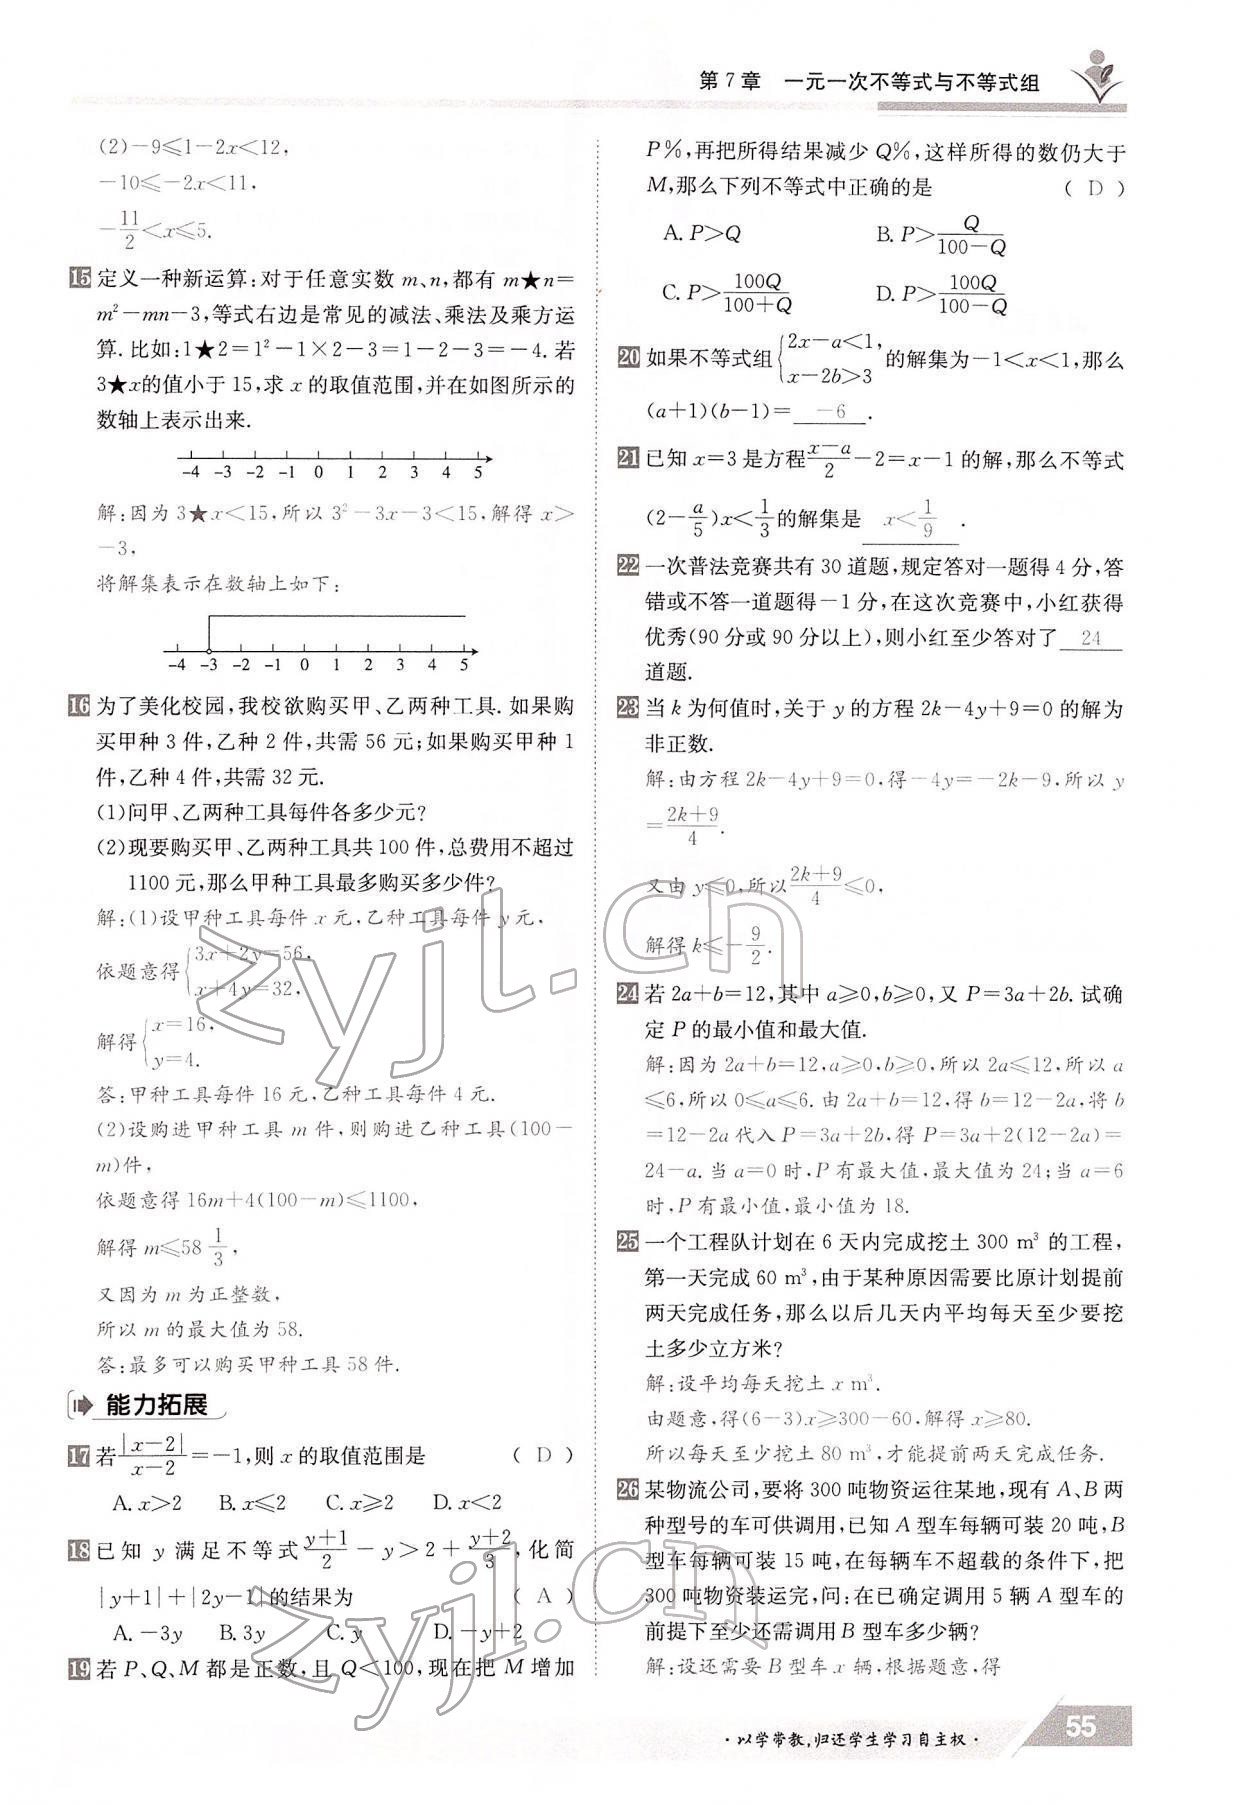 第7章 一元一次不等式与不等式组
(2)-9≤1-2x<12,
-10≤-2x<11,
-11/2<x≤5.
15 定义一种新运算:对于任意实数 m、n,都有 m★n=
m²-mn-3,等式右边是常见的减法、乘法及乘方运
算.比如:1★2=1²-1×2-3=1-2-3=-4.若
3★x的值小于15,求 x 的取值范围,并在如图所示的
数轴上表示出来.
-4 -3 -2 -1 0 1 2 3 4 5
解:因为 3★x<15,所以 3²-3x-3<15,解得 x>
-3,
将解集表示在数轴上如下:
-4 -3 -2 -1 0 1 2 3 4 5
16 为了美化校园,我校欲购买甲、乙两种工具.如果购
买甲种 3 件,乙种 2 件,共需 56 元;如果购买甲种 1
件,乙种 4 件,共需 32 元.
(1)问甲、乙两种工具每件各多少元?
(2)现要购买甲、乙两种工具共 100 件,总费用不超过
1100 元,那么甲种工具最多购买多少件?
解:(1)设甲种工具每件 x 元,乙种工具每件 y 元,
依题意得{3x+2y=56,
x+4y=32,
解得{x=16,
y=4.
答:甲种工具每件 16 元,乙种工具每件 4 元.
(2)设购进甲种工具 m 件,则购进乙种工具(100-
m)件,
依题意得 16m+4(100-m)≤1100,
解得 m≤58 1/3,
又因为 m 为正整数,
所以 m 的最大值为 58.
答:最多可以购买甲种工具 58 件.
能力拓展
17 若|x-2|/(x-2)=-1,则 x 的取值范围是 ( D )
A. x>2 B. x≤2 C. x≥2 D. x<2
18 已知 y 满足不等式(y+1)/2-y>2+(y+2)/3,化简
|y+1|+|2y-1|的结果为 ( A )
A. -3y B. 3y C. y D. -y+2
19 若 P、Q、M 都是正数,且 Q<100,现在把 M 增加
P%,再把所得结果减少 Q%,这样所得的数仍大于
M,那么下列不等式中正确的是 ( D )
A. P>Q B. P>Q/(100-Q)
C. P>100Q/(100+Q) D. P>100Q/(100-Q)
20 如果不等式组{2x-a<1, x-2b>3 的解集为-1<x<1,那么
(a+1)(b-1)= -6 .
21 已知 x=3 是方程(x-a)/2-2=x-1 的解,那么不等式
(2-a/5)x<1/3的解集是 x<1/9 .
22 一次普法竞赛共有 30 道题,规定答对一题得 4 分,答
错或不答一道题得-1 分,在这次竞赛中,小红获得
优秀(90 分或 90 分以上),则小红至少答对了 24
道题.
23 当 k 为何值时,关于 y 的方程 2k-4y+9=0 的解为
非正数.
解:由方程 2k-4y+9=0,得-4y=-2k-9,所以 y
=(2k+9)/4.
又由 y≤0,所以(2k+9)/4≤0,
解得 k≤-9/2.
24 若 2a+b=12,其中 a≥0,b≥0,又 P=3a+2b.试确
定 P 的最小值和最大值.
解:因为 2a+b=12,a≥0,b≥0,所以 2a≤12,所以 a
≤6,所以 0≤a≤6.由 2a+b=12,得 b=12-2a,将 b
=12-2a 代入 P=3a+2b,得 P=3a+2(12-2a)=
24-a.当 a=0 时,P 有最大值,最大值为 24;当 a=6
时,P 有最小值,最小值为 18.
25 一个工程队计划在 6 天内完成挖土 300 m³ 的工程,
第一天完成 60 m³,由于某种原因需要比原计划提前
两天完成任务,那么以后几天内平均每天至少要挖
土多少立方米?
解:设平均每天挖土 x m³.
由题意,得(6-3)x≥300-60,解得 x≥80.
所以每天至少挖土 80 m³,才能提前两天完成任务.
26 某物流公司,要将 300 吨物资运往某地,现有 A、B 两
种型号的车可供调用,已知 A 型车每辆可装 20 吨,B
型车每辆可装 15 吨,在每辆车不超载的条件下,把
300 吨物资装运完,问:在已确定调用 5 辆 A 型车的
前提下至少还需调用 B 型车多少辆?
解:设还需要 B 型车 x 辆,根据题意,得
·以学带教,归还学生学习自主权·
55
zyjl.cn
zyjl.cn